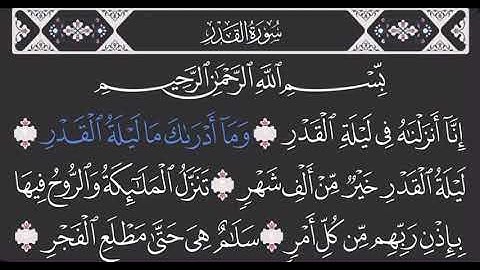 سُورَةُ القَدْرِ
بِسْمِ ٱللَّهِ ٱلرَّحْمَٰنِ ٱلرَّحِيمِ
إِنَّآ أَنزَلْنَٰهُ فِى لَيْلَةِ ٱلْقَدْرِ وَمَآ أَدْرَىٰكَ مَا لَيْلَةُ ٱلْقَدْرِ
لَيْلَةُ ٱلْقَدْرِ خَيْرٌ مِّنْ أَلْفِ شَهْرٍ تَنَزَّلُ ٱلْمَلَٰٓئِكَةُ وَٱلرُّوحُ فِيهَا
بِإِذْنِ رَبِّهِم مِّن كُلِّ أَمْرٍ سَلَٰمٌ هِىَ حَتَّىٰ مَطْلَعِ ٱلْفَجْرِ